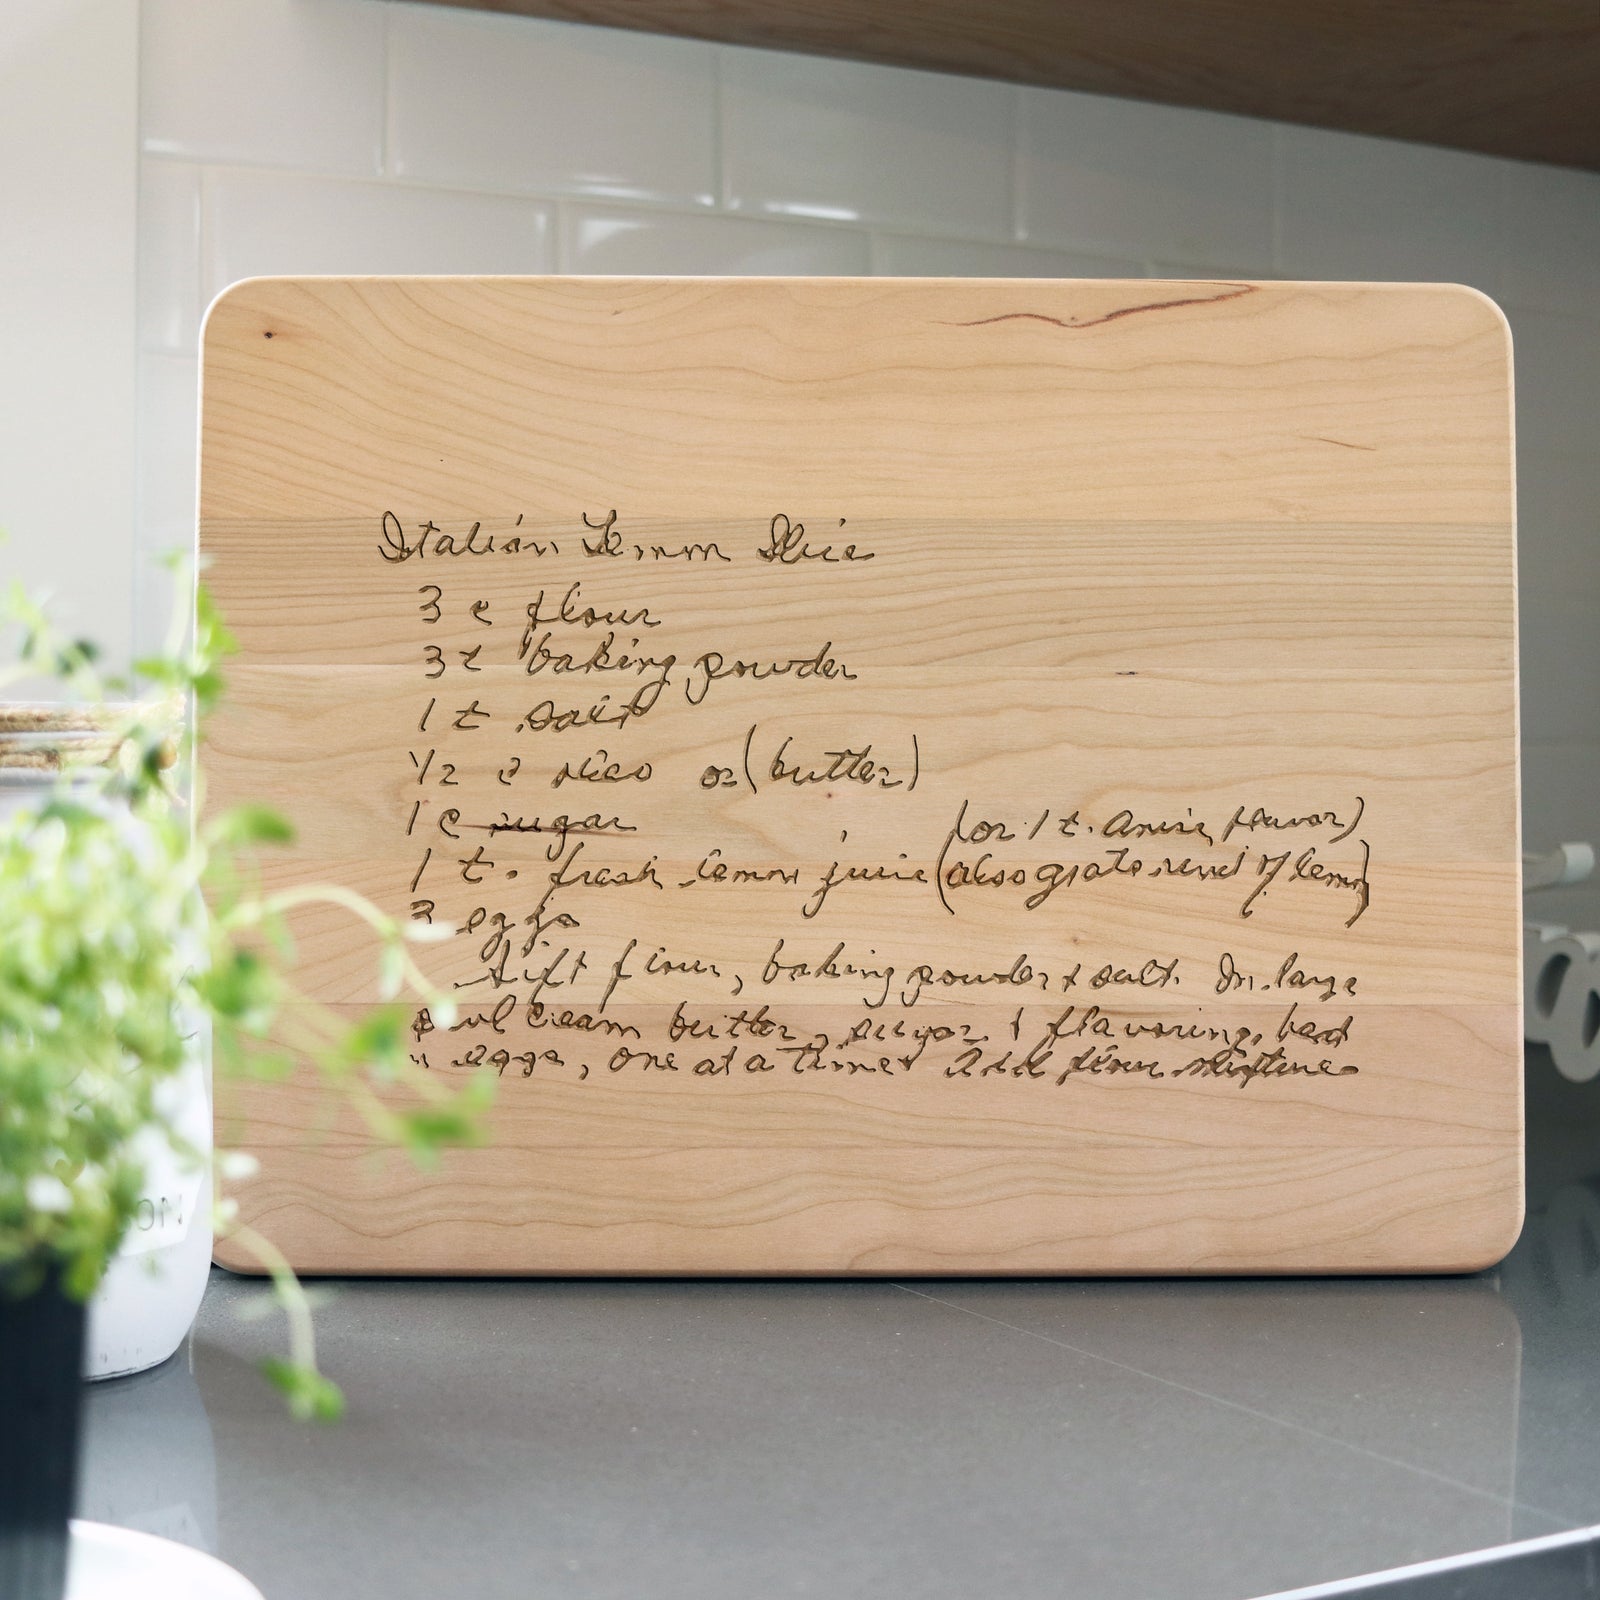 Italian Lemon Slice
3 c flour
3 t baking powder
1 t salt
1/2 c or (butter)
1 c sugar
(or 1 t. Anise flavor)
1 t. fresh lemon juice (also grate rind of lemon)
3 eggs
Sift flour, baking powder + salt. In large
bowl cream butter, sugar, + flavoring, beat
in eggs, one at a time. Add flour mixture